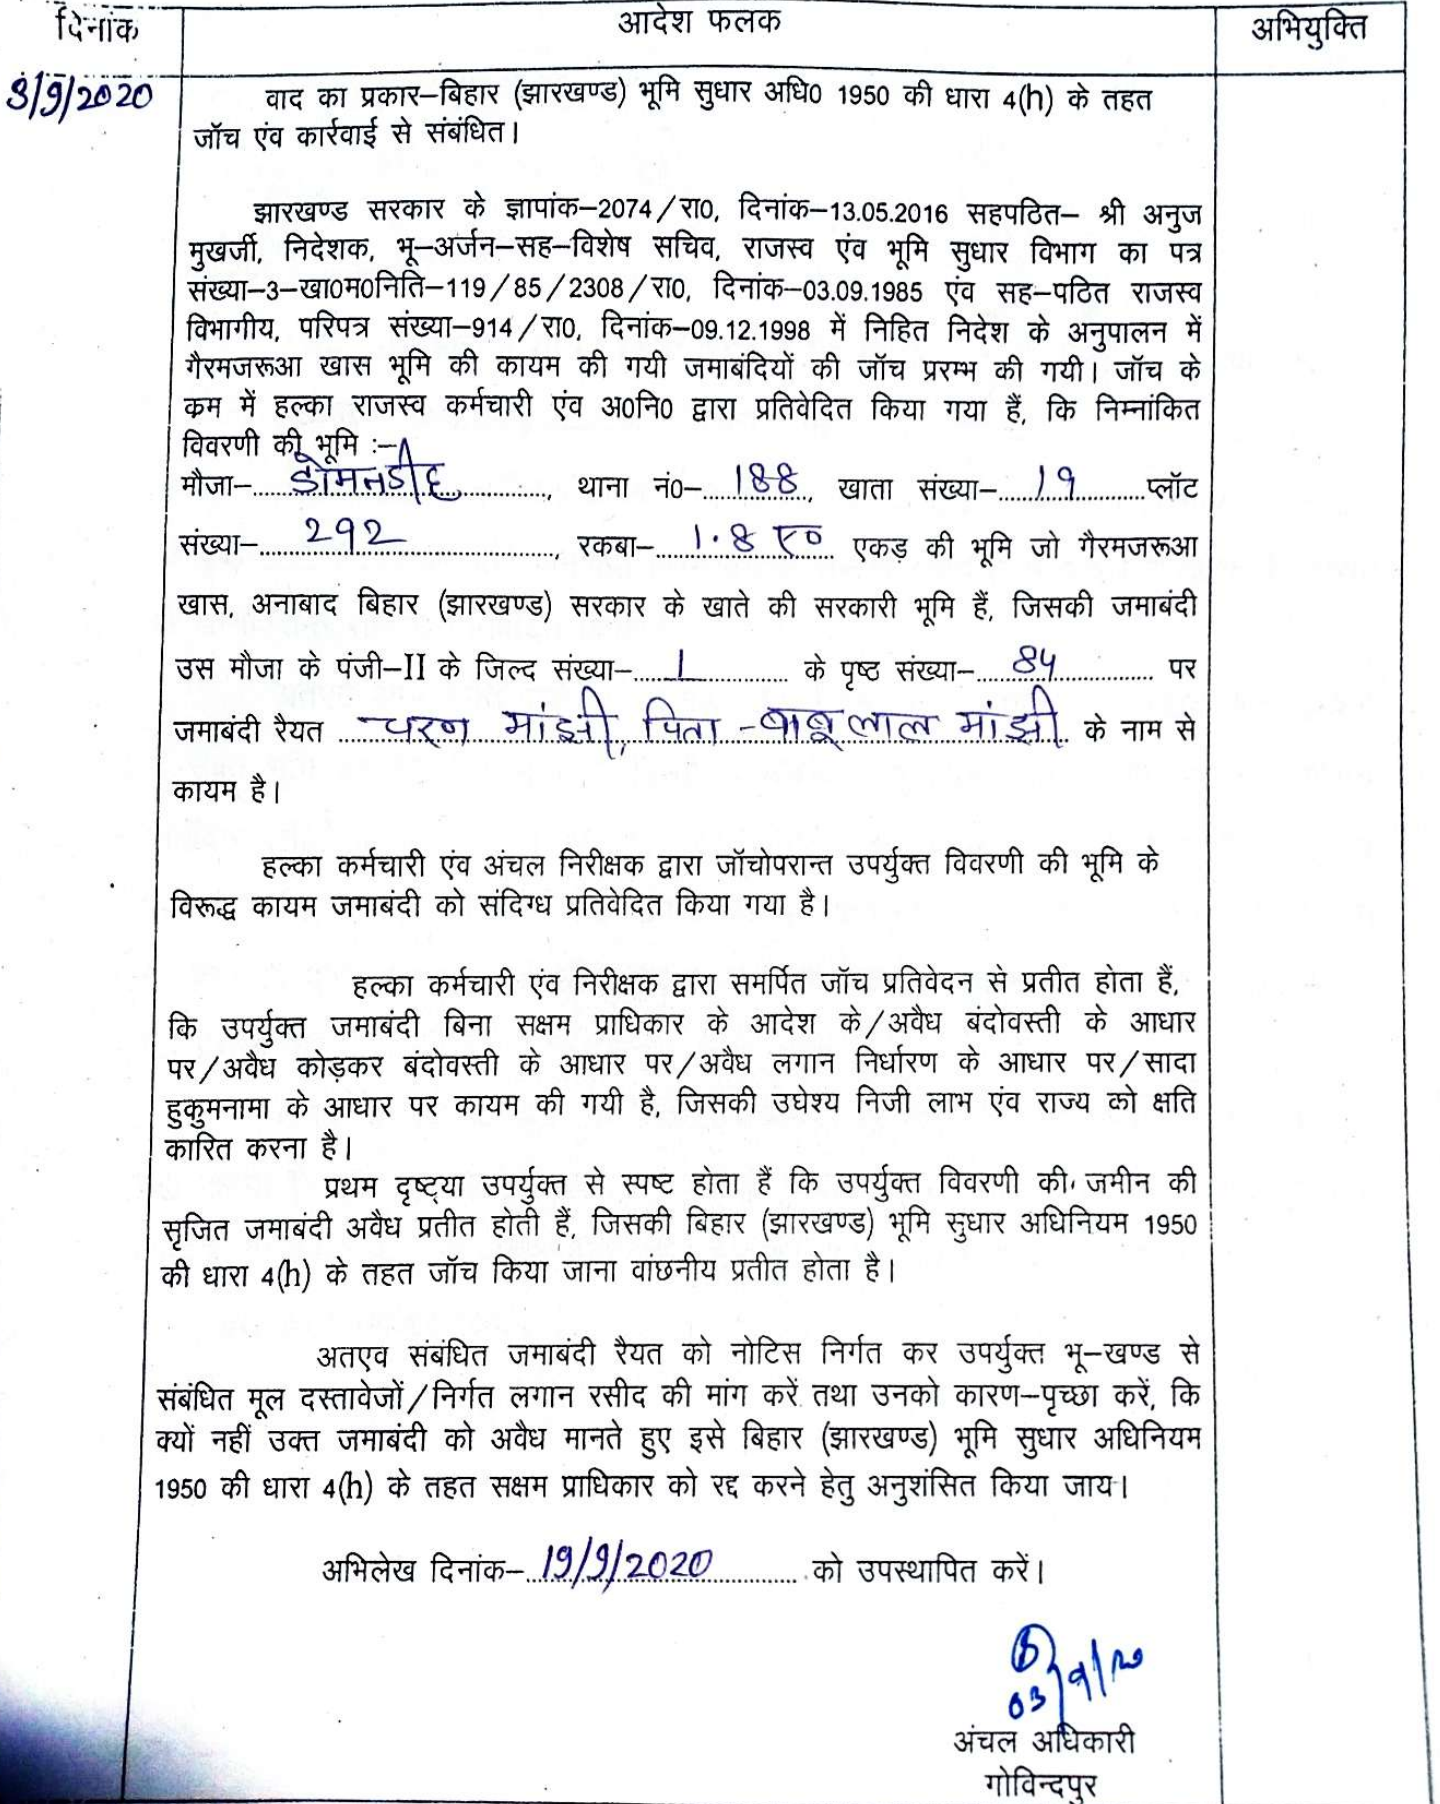 दिनांक आदेश फलक अभियुक्ति
3/9/2020 वाद का प्रकार–बिहार (झारखण्ड) भूमि सुधार अधि0 1950 की धारा 4(h) के तहत
जॉच एंव कार्रवाई से संबंधित।
झारखण्ड सरकार के ज्ञापांक–2074/रा0, दिनांक–13.05.2016 सहपठित– श्री अनुज
मुखर्जी, निदेशक, भू–अर्जन–सह–विशेष सचिव, राजस्व एंव भूमि सुधार विभाग का पत्र
संख्या–3–खा0म0निति–119/85/2308/रा0, दिनांक–03.09.1985 एंव सह–पठित राजस्व
विभागीय, परिपत्र संख्या–914/रा0, दिनांक–09.12.1998 में निहित निदेश के अनुपालन में
गैरमजरूआ खास भूमि की कायम की गयी जमाबंदियों की जॉच प्ररम्भ की गयी। जॉच के
क्रम में हल्का राजस्व कर्मचारी एंव अ0नि0 द्वारा प्रतिवेदित किया गया हैं, कि निम्नांकित
विवरणी की भूमि :–
मौजा–डोमनडीह, थाना नं0–188, खाता संख्या–19 प्लॉट
संख्या–292, रकबा–1.8 ए0 एकड़ की भूमि जो गैरमजरूआ
खास, अनाबाद बिहार (झारखण्ड) सरकार के खाते की सरकारी भूमि हैं, जिसकी जमाबंदी
उस मौजा के पंजी–II के जिल्द संख्या–1 के पृष्ठ संख्या–84 पर
जमाबंदी रैयत चरण मांझी, पिता -बाबूलाल मांझी के नाम से
कायम है।
हल्का कर्मचारी एंव अंचल निरीक्षक द्वारा जॉचोपरान्त उपर्युक्त विवरणी की भूमि के
विरूद्ध कायम जमाबंदी को संदिग्ध प्रतिवेदित किया गया है।
हल्का कर्मचारी एंव निरीक्षक द्वारा समर्पित जॉच प्रतिवेदन से प्रतीत होता हैं,
कि उपर्युक्त जमाबंदी बिना सक्षम प्राधिकार के आदेश के/अवैध बंदोवस्ती के आधार
पर/अवैध कोड़कर बंदोवस्ती के आधार पर/अवैध लगान निर्धारण के आधार पर/सादा
हुकुमनामा के आधार पर कायम की गयी है, जिसकी उघेश्य निजी लाभ एंव राज्य को क्षति
कारित करना है।
प्रथम दृष्ट्या उपर्युक्त से स्पष्ट होता हैं कि उपर्युक्त विवरणी की जमीन की
सृजित जमाबंदी अवैध प्रतीत होती हैं, जिसकी बिहार (झारखण्ड) भूमि सुधार अधिनियम 1950
की धारा 4(h) के तहत जॉच किया जाना वांछनीय प्रतीत होता है।
अतएव संबंधित जमाबंदी रैयत को नोटिस निर्गत कर उपर्युक्त भू–खण्ड से
संबंधित मूल दस्तावेजों/निर्गत लगान रसीद की मांग करें तथा उनको कारण–पृच्छा करें, कि
क्यों नहीं उक्त जमाबंदी को अवैध मानते हुए इसे बिहार (झारखण्ड) भूमि सुधार अधिनियम
1950 की धारा 4(h) के तहत सक्षम प्राधिकार को रद्द करने हेतु अनुशंसित किया जाय।
अभिलेख दिनांक–19/9/2020 को उपस्थापित करें।
03/9/20
अंचल अधिकारी
गोविन्दपुर